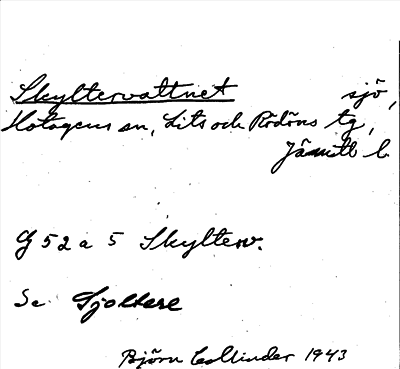 Skyltervattnet sjö,
Hotagens sn, Lits och Rödöns tg,
Jämtl l.
G 52 a 5 Skylterv.
Se Sjoltere
Björn Collinder 1943